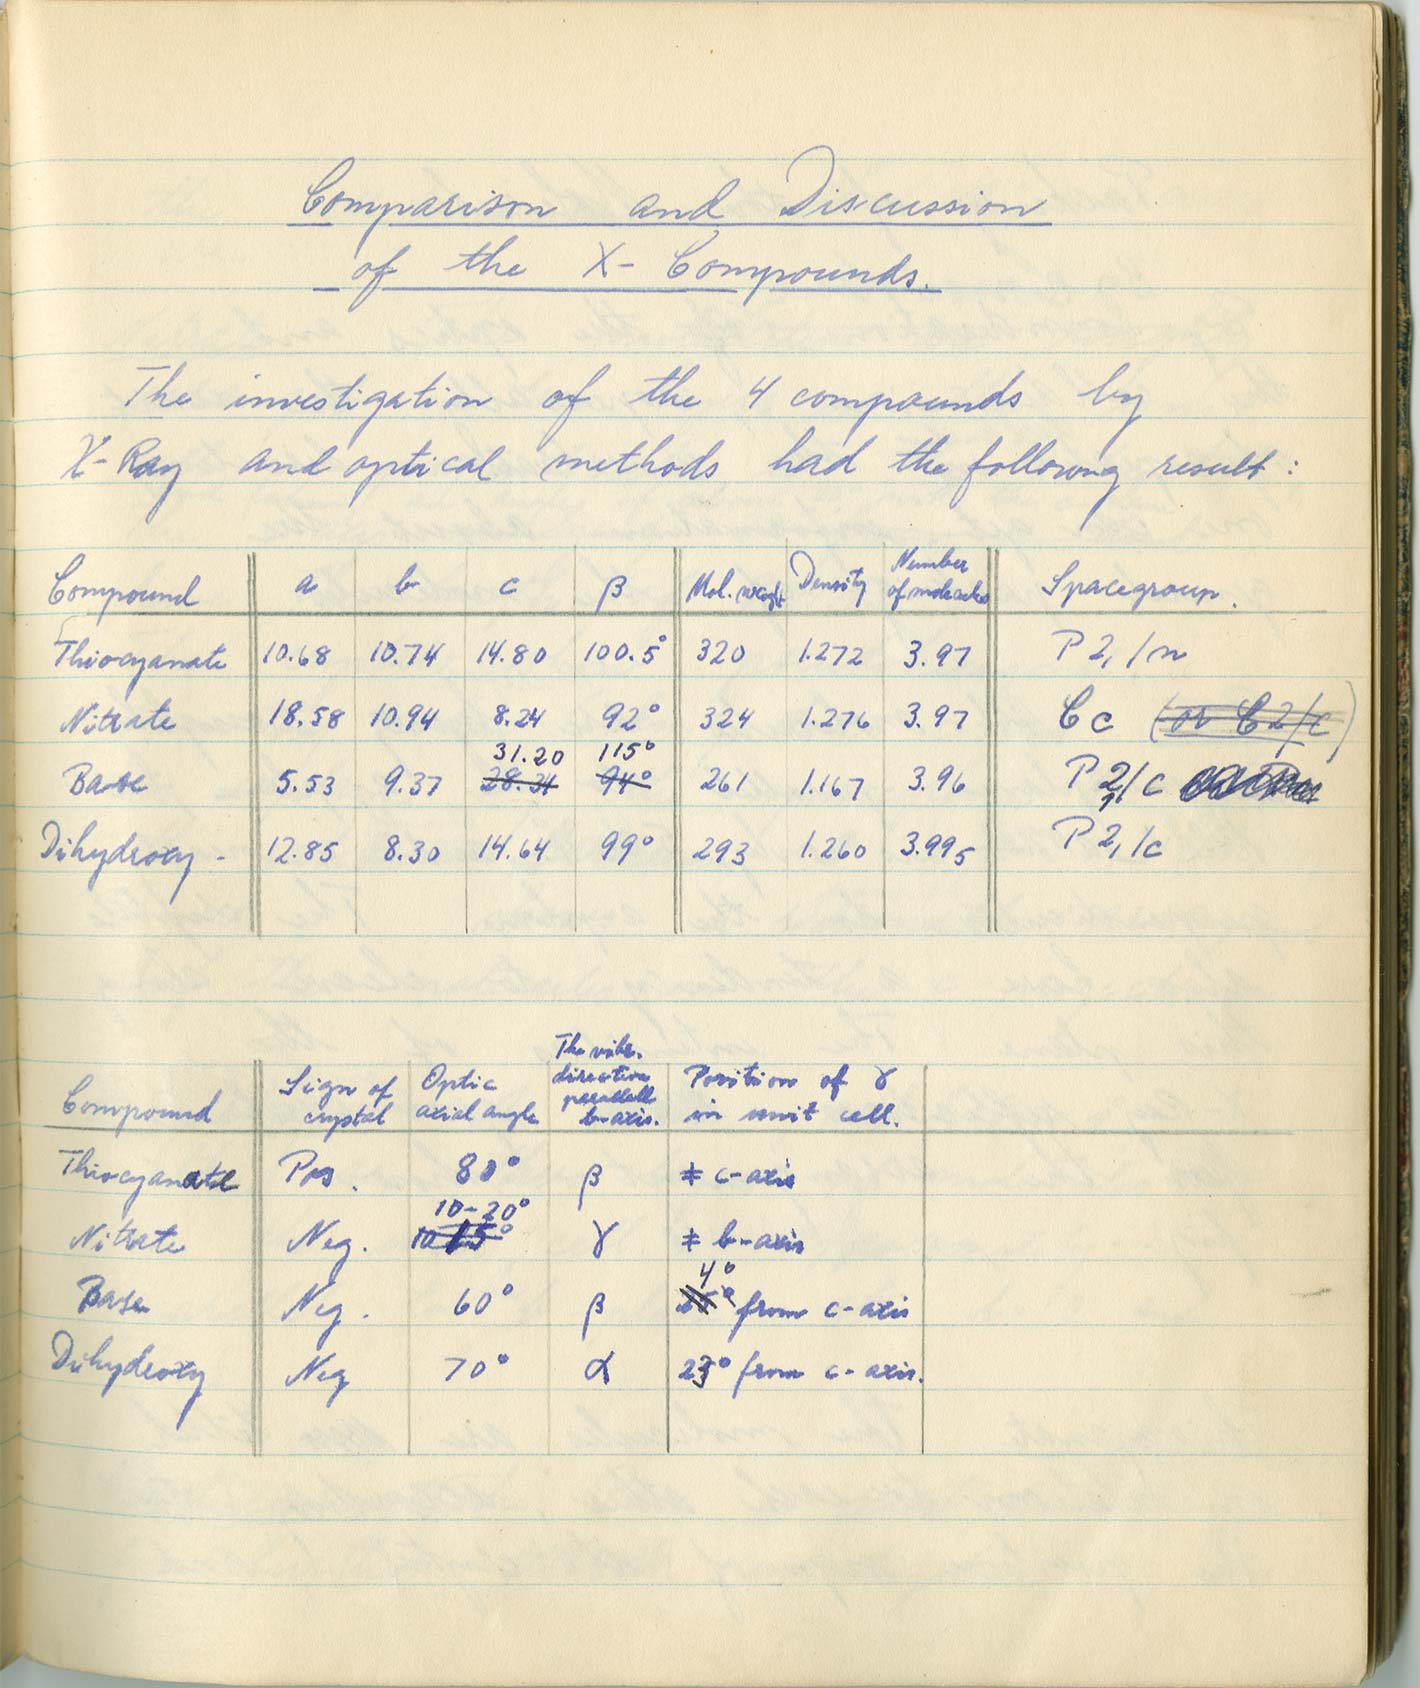 Comparison and Discussion
of the X-Compounds.
The investigation of the 4 compounds by
X-Ray and optical methods had the following result:
Compound a b c β Mol. weight Density Number of molecules Spacegroup.
Thiocyanate 10.68 10.74 14.80 100.5° 320 1.272 3.97 P 2₁/n
Nitrate 18.58 10.94 8.24 92° 324 1.276 3.97 Cc (or C2/c)
31.20 115°
Base 5.53 9.37 28.34 94° 261 1.167 3.96 P 2₁/c
Dihydroxy - 12.85 8.30 14.64 99° 293 1.260 3.995 P 2₁/c
Compound Sign of crystal Optic axial angle The vibr. direction parallell b-axis. Position of γ in unit cell.
Thiocyanate Pos. 80° β ≠ c-axis
10-20°
Nitrate Neg. 10 15° γ ≠ b-axis
4°
Base Neg. 60° β from c-axis
Dihydroxy Neg 70° α 23° from c-axis.